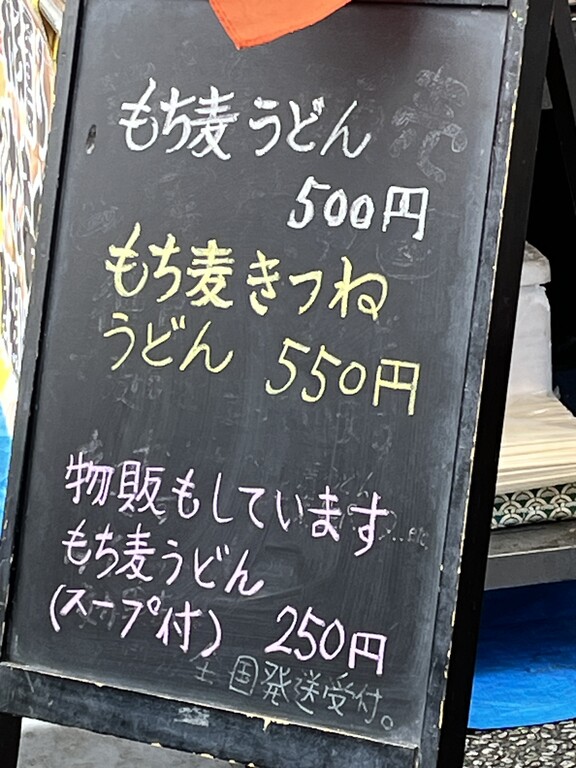 もち麦うどん
500円
もち麦きつね
うどん 550円
物販もしています
もち麦うどん
(スープ付) 250円
全国発送受付。